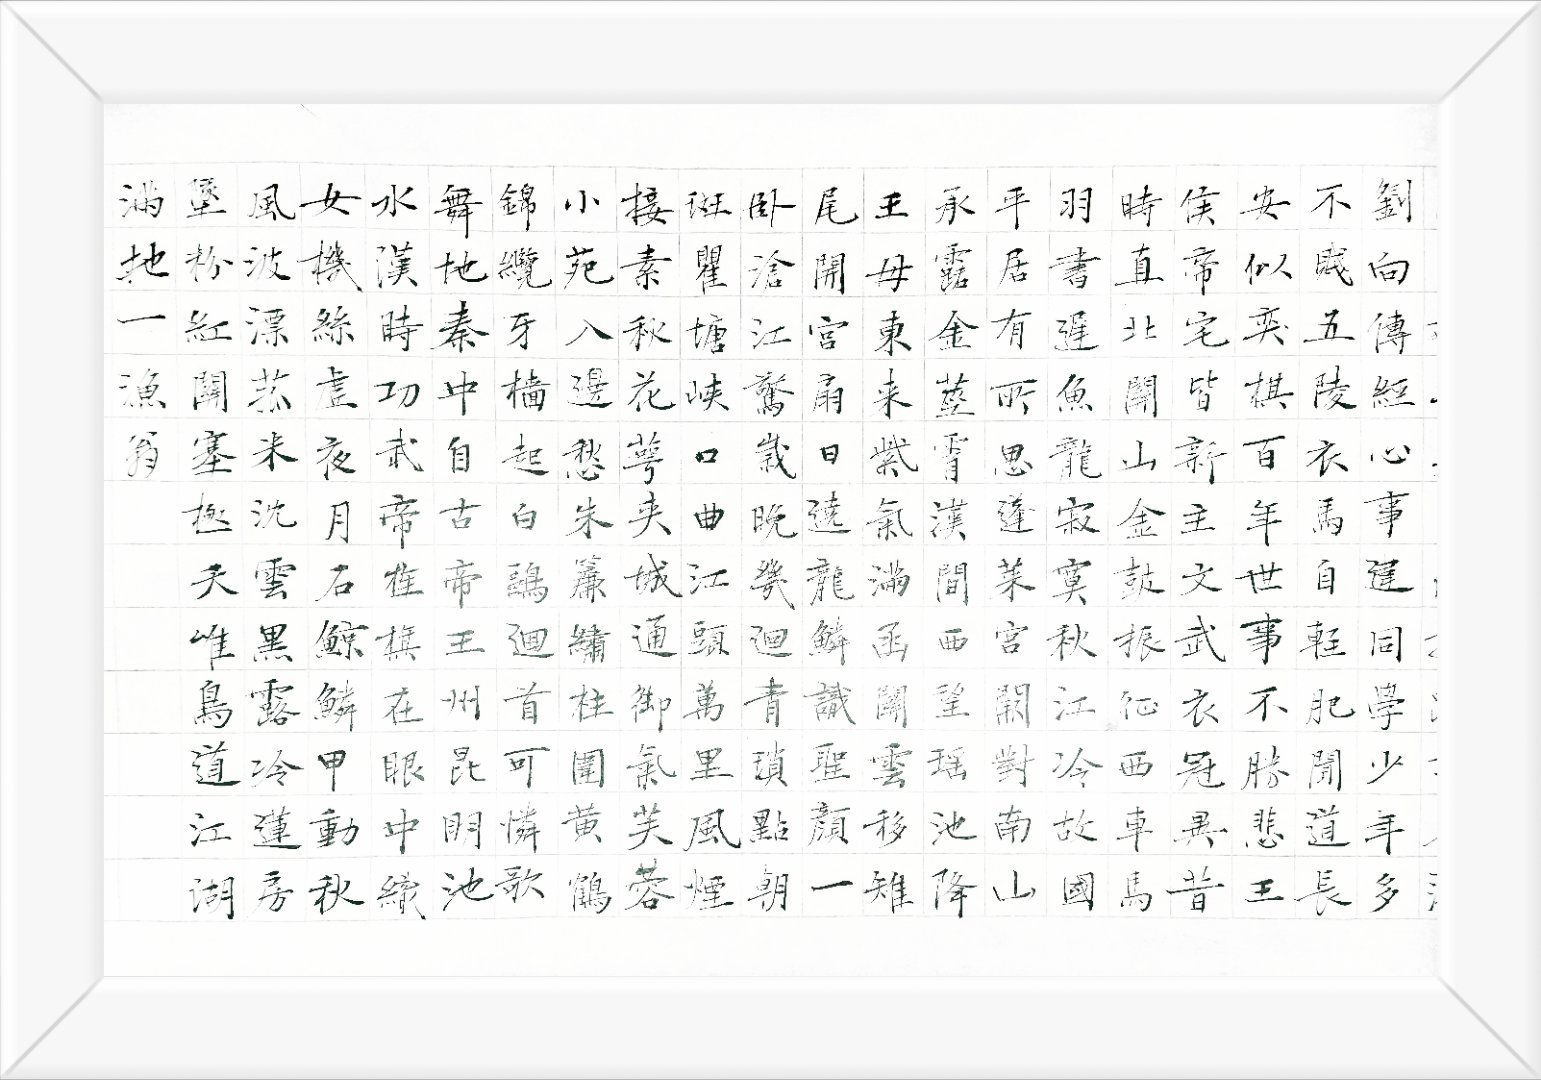 劉向傳經心事違同學少年多
不賤五陵衣馬自輕肥聞道長
安似弈棋百年世事不勝悲王
侯帝宅皆新主文武衣冠異昔
時直北關山金鼓振征西車馬
羽書遲魚龍寂寞秋江冷故國
平居有所思蓬萊宮闕對南山
承露金莖霄漢間西望瑤池降
王母東来紫氣滿函關雲移雉
尾開宮扇日遶龍鱗識聖顏一
臥滄江驚歲晚幾迴青瑣點朝
班瞿塘峽口曲江頭萬里風煙
接素秋花萼夾城通御氣芙蓉
小苑入邊愁朱簾繡柱圍黃鶴
錦纜牙檣起白鷗迴首可憐歌
舞地秦中自古帝王州昆明池
水漢時功武帝旌旗在眼中織
女機絲虛夜月石鯨鱗甲動秋
風波漂菰米沈雲黑露冷蓮房
墜粉紅關塞極天唯鳥道江湖
滿地一漁翁